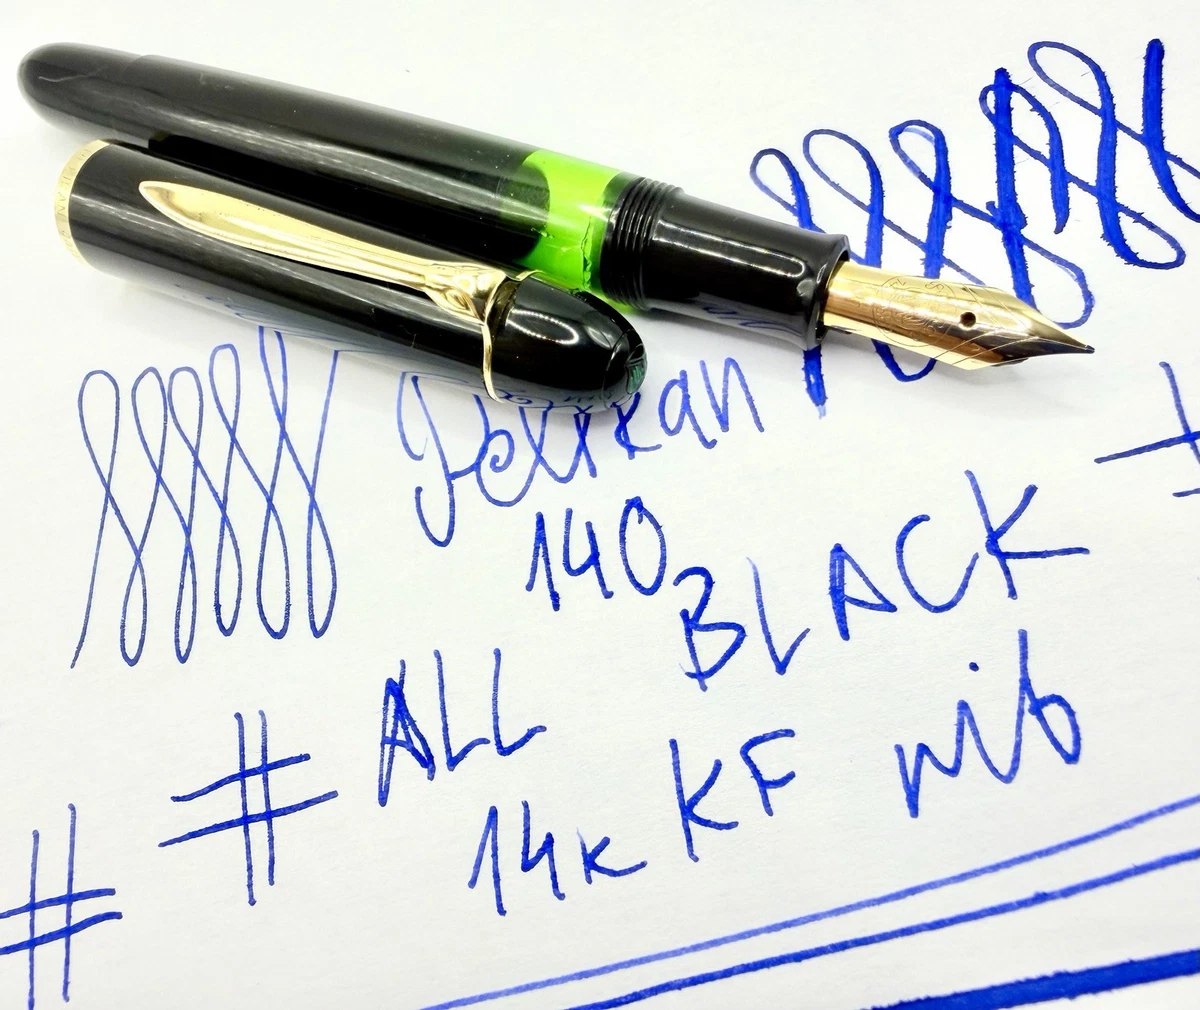 Pelikan
140
BLACK
# ALL
14K KF nib
#